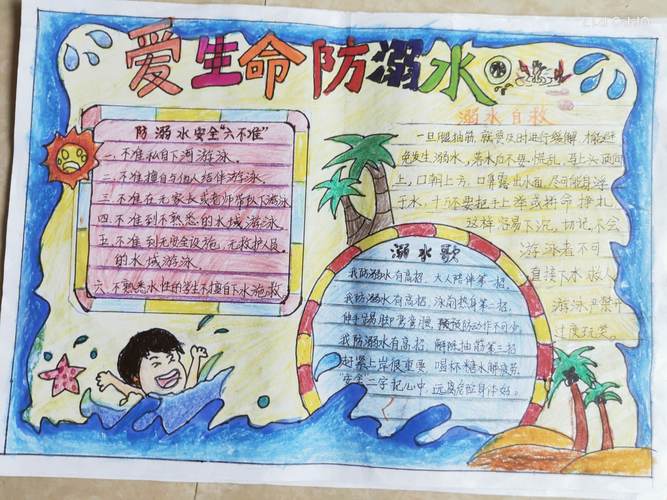 爱生命防溺水
防溺水安全"六不准"
一.不准私自下河游泳.
二.不准擅自与他人结伴游泳.
三.不准在无家长或老师带队下游泳
四.不准到不熟悉的水域游泳.
五.不准到无安全设施,无救护人员
的水域游泳.
六.不熟悉水性的学生不擅自下水施救
溺水自救
一旦腿抽筋,就要及时进行缓解,才能避
免发生溺水,落水后不要慌乱,马上头顶向
上,口朝上方,口鼻露出水面,尽可能身浮
于水,千万不要把手上举或拼命挣扎,
这样容易下沉,切记,不会
游泳者不可
直接下水救人
游泳严禁
过度玩笑.
溺水歌
我防溺水有高招,大人陪伴第一招,
我防溺水有高招,泳前热身第二招,
伸手踢脚弯弯腰,预防动作不可少,
我防溺水有高招,解除抽筋第三招
赶紧上岸很重要,喝杯糖水解疲劳,
安全二字记心中,远离危险身体好.